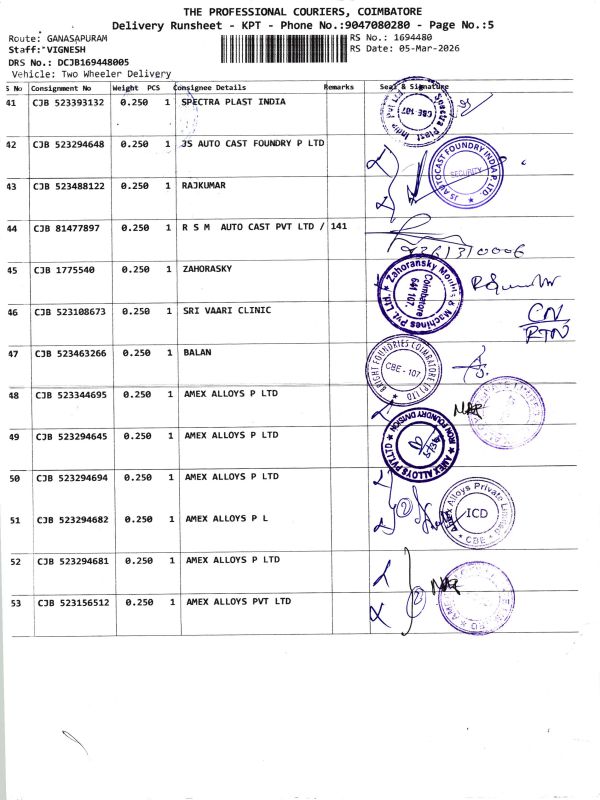 THE PROFESSIONAL COURIERS, COIMBATORE
Delivery Runsheet - KPT - Phone No.:9047080280 - Page No.:5
Route: GANASAPURAM
RS No.: 1694480
Staff: VIGNESH
RS Date: 05-Mar-2026
DRS No.: DCJB169448005
Vehicle: Two Wheeler Delivery
S No Consignment No Weight PCS Consignee Details Remarks Seal & Signature
41 CJB 523393132 0.250 1 SPECTRA PLAST INDIA
42 CJB 523294648 0.250 1 JS AUTO CAST FOUNDRY P LTD
43 CJB 523488122 0.250 1 RAJKUMAR
44 CJB 81477897 0.250 1 R S M AUTO CAST PVT LTD / 141
45 CJB 1775540 0.250 1 ZAHORASKY
46 CJB 523108673 0.250 1 SRI VAARI CLINIC
47 CJB 523463266 0.250 1 BALAN
48 CJB 523344695 0.250 1 AMEX ALLOYS P LTD
49 CJB 523294645 0.250 1 AMEX ALLOYS P LTD
50 CJB 523294694 0.250 1 AMEX ALLOYS P LTD
51 CJB 523294682 0.250 1 AMEX ALLOYS P L
52 CJB 523294681 0.250 1 AMEX ALLOYS P LTD
53 CJB 523156512 0.250 1 AMEX ALLOYS PVT LTD
Spectra Plast India Pvt Ltd
CBE-107
JS AUTOCAST FOUNDRY INDIA P. LTD.
SECURITY
Zahoransky Moulds & Machines Pvt. Ltd.
Coimbatore
641 107.
CN
RTN
BRIGHT FOUNDRIES COIMBATORE (P) LTD
CBE - 107
AMEX ALLOYS PVT LTD
IRON FOUNDRY DIVISION
Amex Alloys Private Limited
ICD
CBE